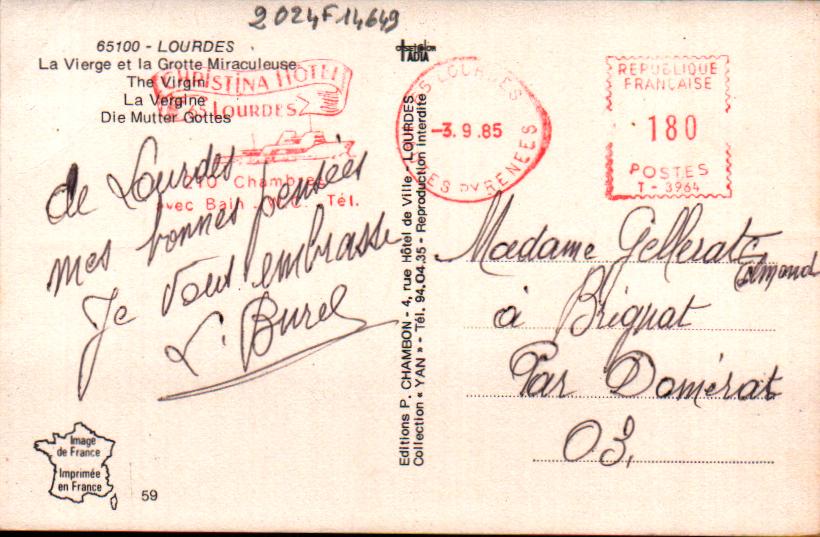 2024F14649
65100 - LOURDES
La Vierge et la Grotte Miraculeuse
The Virgin
La Vergine
Die Mutter Gottes
CHRISTINA HOTEL
65 LOURDES
210 Chambres
avec Bain - W.C. - Tél.
de Lourdes
mes bonnes pensées
Je vous embrasse
L. Burel
Image
de France
Imprimée
en France
59
Editions P. CHAMBON - 4, rue Hôtel de Ville - LOURDES
Collection « YAN » - Tél. 94.04.35 - Reproduction interdite
TADIA
65 LOURDES
-3.9.85
HTES PYRENEES
REPUBLIQUE
FRANÇAISE
180
POSTES
T - 3964
Madame Gellerat
Edmond
à Brignat
Par Domérat
03.